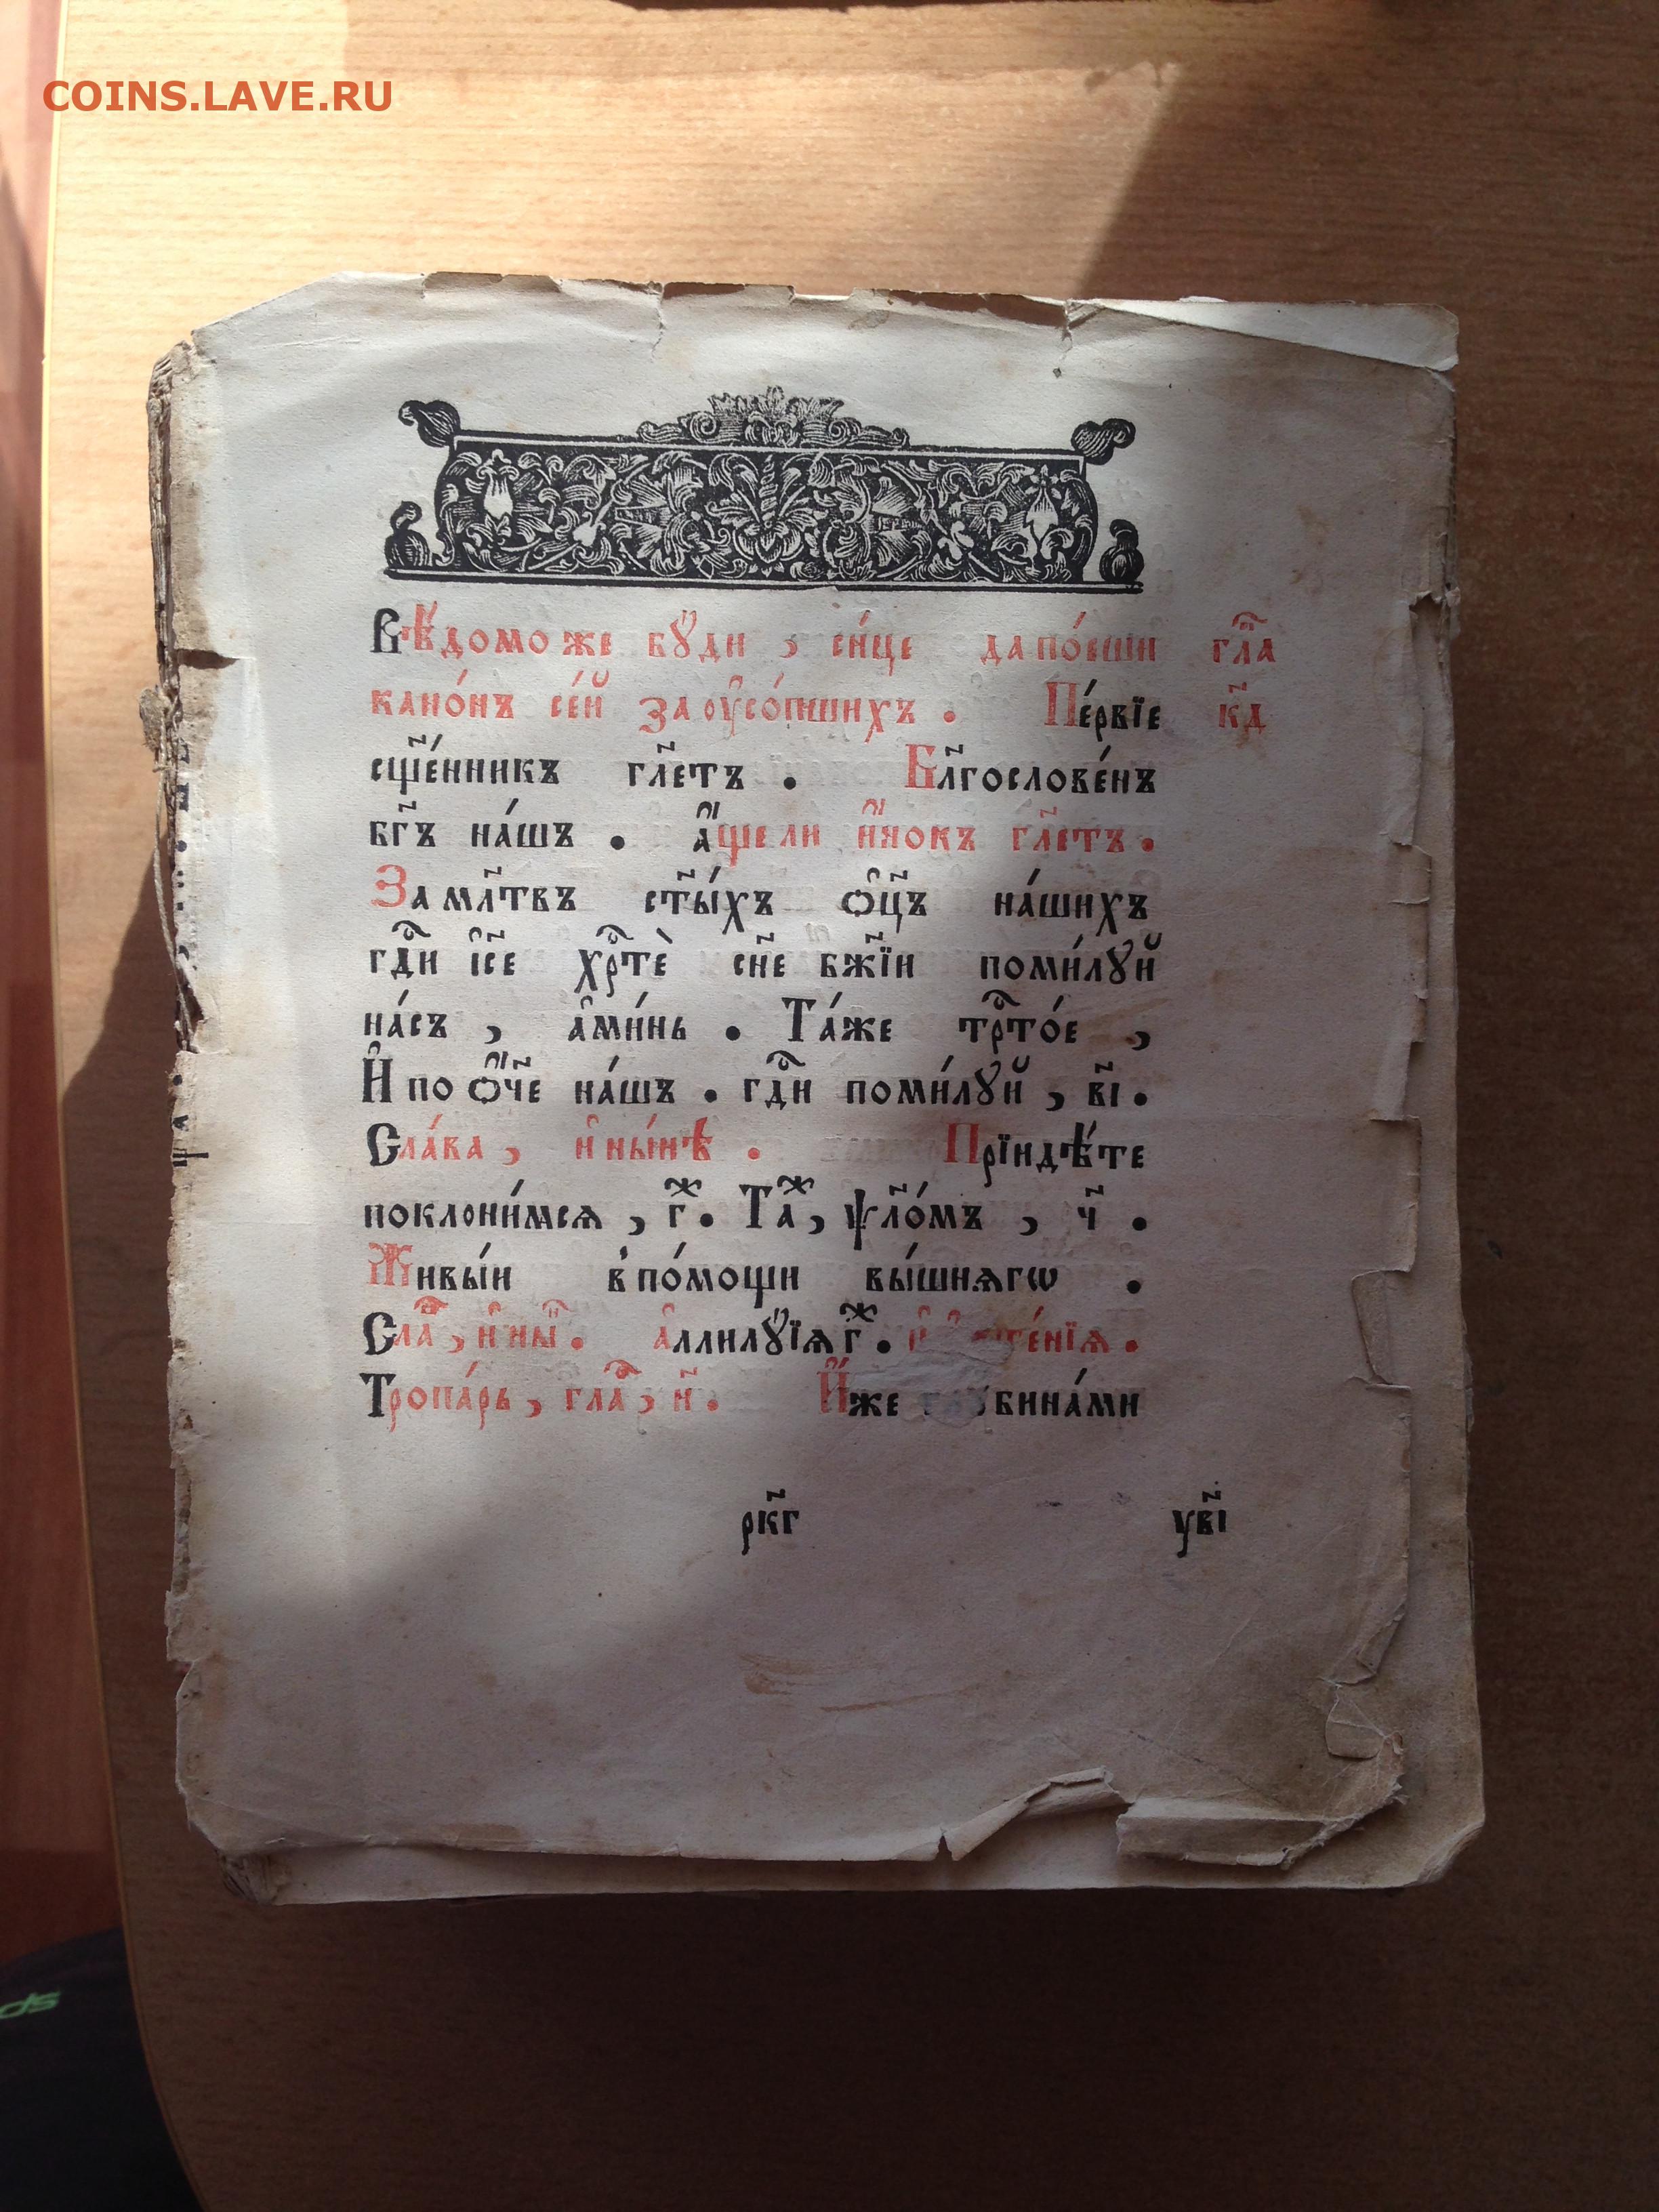 COINS.LAVE.RU
Вѣ́домо же бꙋ́ди , си́це да пое́ши гл҃а
кано́нъ се́й за ᲂу҆со́пшихъ . Пе́рвїе к҃д
сщ҃е́нникъ гл҃етъ . Бл҃гослове́нъ
бг҃ъ на́шъ . а҆́ще ли и҆́нокъ гл҃етъ .
За мл҃твъ ст҃ы́хъ ѻ҆ц҃ъ на́шихъ
гдⷭ҇и і҆с҃е хрⷭ҇тѐ сн҃е бж҃їи поми́лꙋй
на́съ , а҆ми́нь . Та́же трⷭ҇то́е ,
И҆ по ѻ҆́ч҃е на́шъ . гдⷭ҇и поми́лꙋй , в҃і .
Сла́ва , и҆ ны́нѣ . Прїидѣ́те
поклони́мсѧ , г҃ⷤ . Таⷤ , ѱл҃о́мъ , ч҃ .
Живы́и в̾ по́мощи вы́шнѧгѡ .
Слаⷡ , и҆ ныⷩ . а҆ллилꙋ́їѧ г҃ⷤ .
Тропа́рь , глаⷭ , и҃ . И҆́же глꙋбина́ми
рк҃г ув҃і
sp